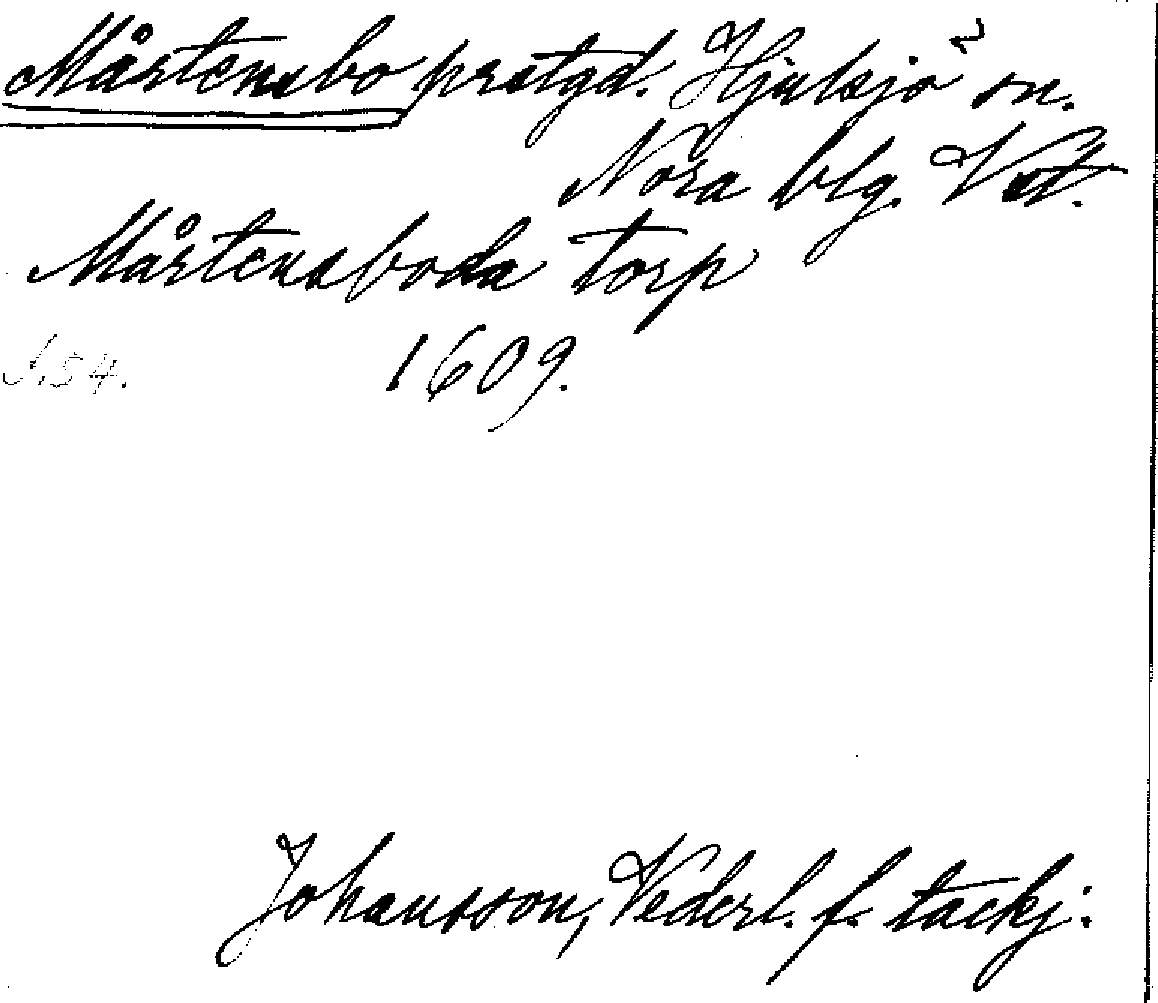 Mårtensbo prstgd. Hjulsjö sn.
Nora blg. Vstl.
Mårtensboda torp
s. 54. 1609.
Johansson, Vederl. f. tackj: